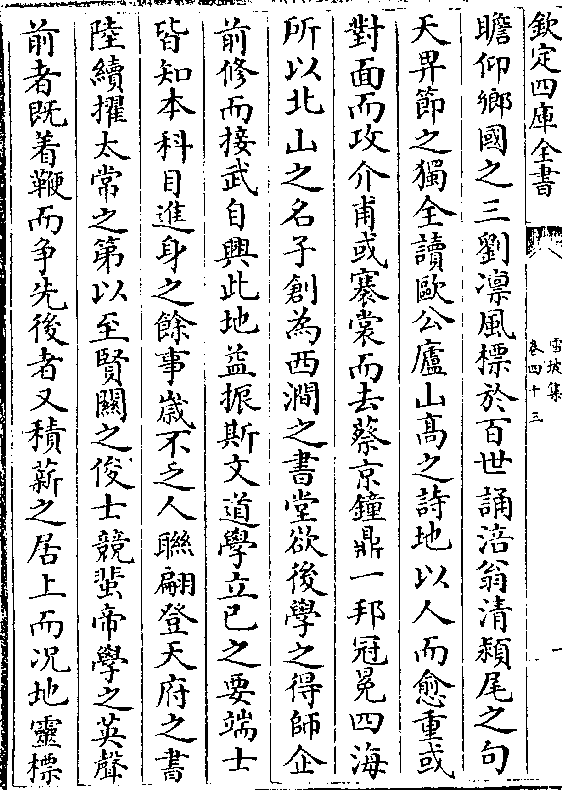 欽定四庫全書
雪坡集
卷四十三
一
瞻仰鄉國之三劉凛風標於百世誦涪翁清潁尾之句
天畀節之獨全讀歐公廬山髙之詩地以人而愈重或
對面而攻介甫或褰裳而去蔡京鐘鼎一邦冠冕四海
所以北山之名子創為西澗之書堂欲後學之得師企
前修而接武自興此地益振斯文道學立已之要端士
皆知本科目進身之餘事嵗不乏人聯翩登天府之書
陸續擢太常之第以至賢闗之俊士競蜚帝學之英聲
前者既着鞭而争先後者又積薪之居上而况地靈標